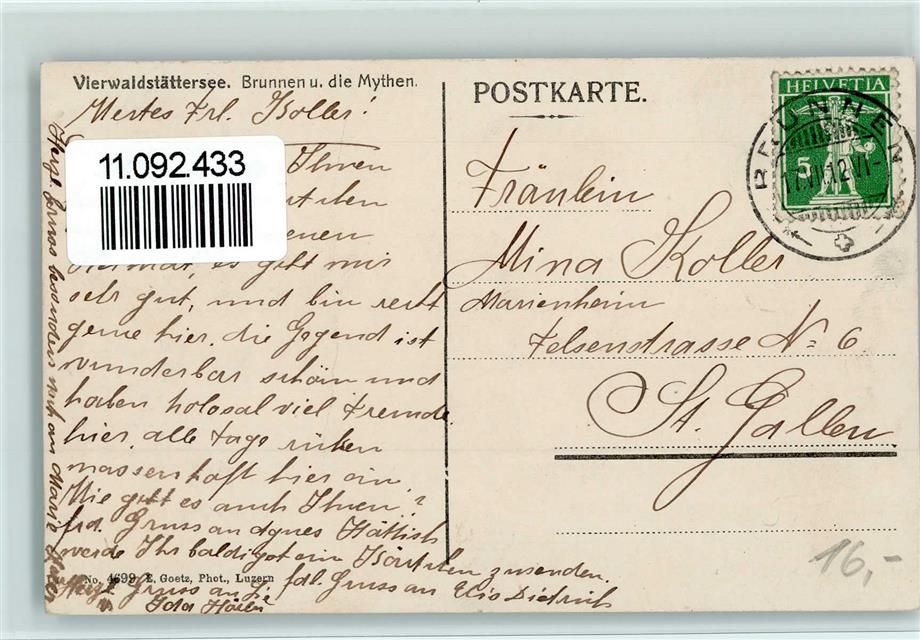 Vierwaldstättersee. Brunnen u. die Mythen.
POSTKARTE.
HELVETIA
5
BRUNNEN
11.092.433
Wertes Frl. Koller!
Ihnen
es geht mir
sehr gut, und bin recht
gerne hier. die Gegend ist
wunderbar schön und
haben kolosal viel Fremde
hier. alle Tage rüken
massenhaft hier ein.
Wie geht es auch Ihnen?
frd. Gruss an Agnes Hättich
werde Ihr baldigst ein Kärtchen zusenden.
fdl. Gruss an Elis Dietrich
Herzl Gruss an Sie
Ida
Herzl. Gruss besonders auch an Marie
No. 4699 E. Goetz, Phot., Luzern
Fräulein
Mina Koller
Marienheim
Felsenstrasse No 6
St. Gallen
16,-